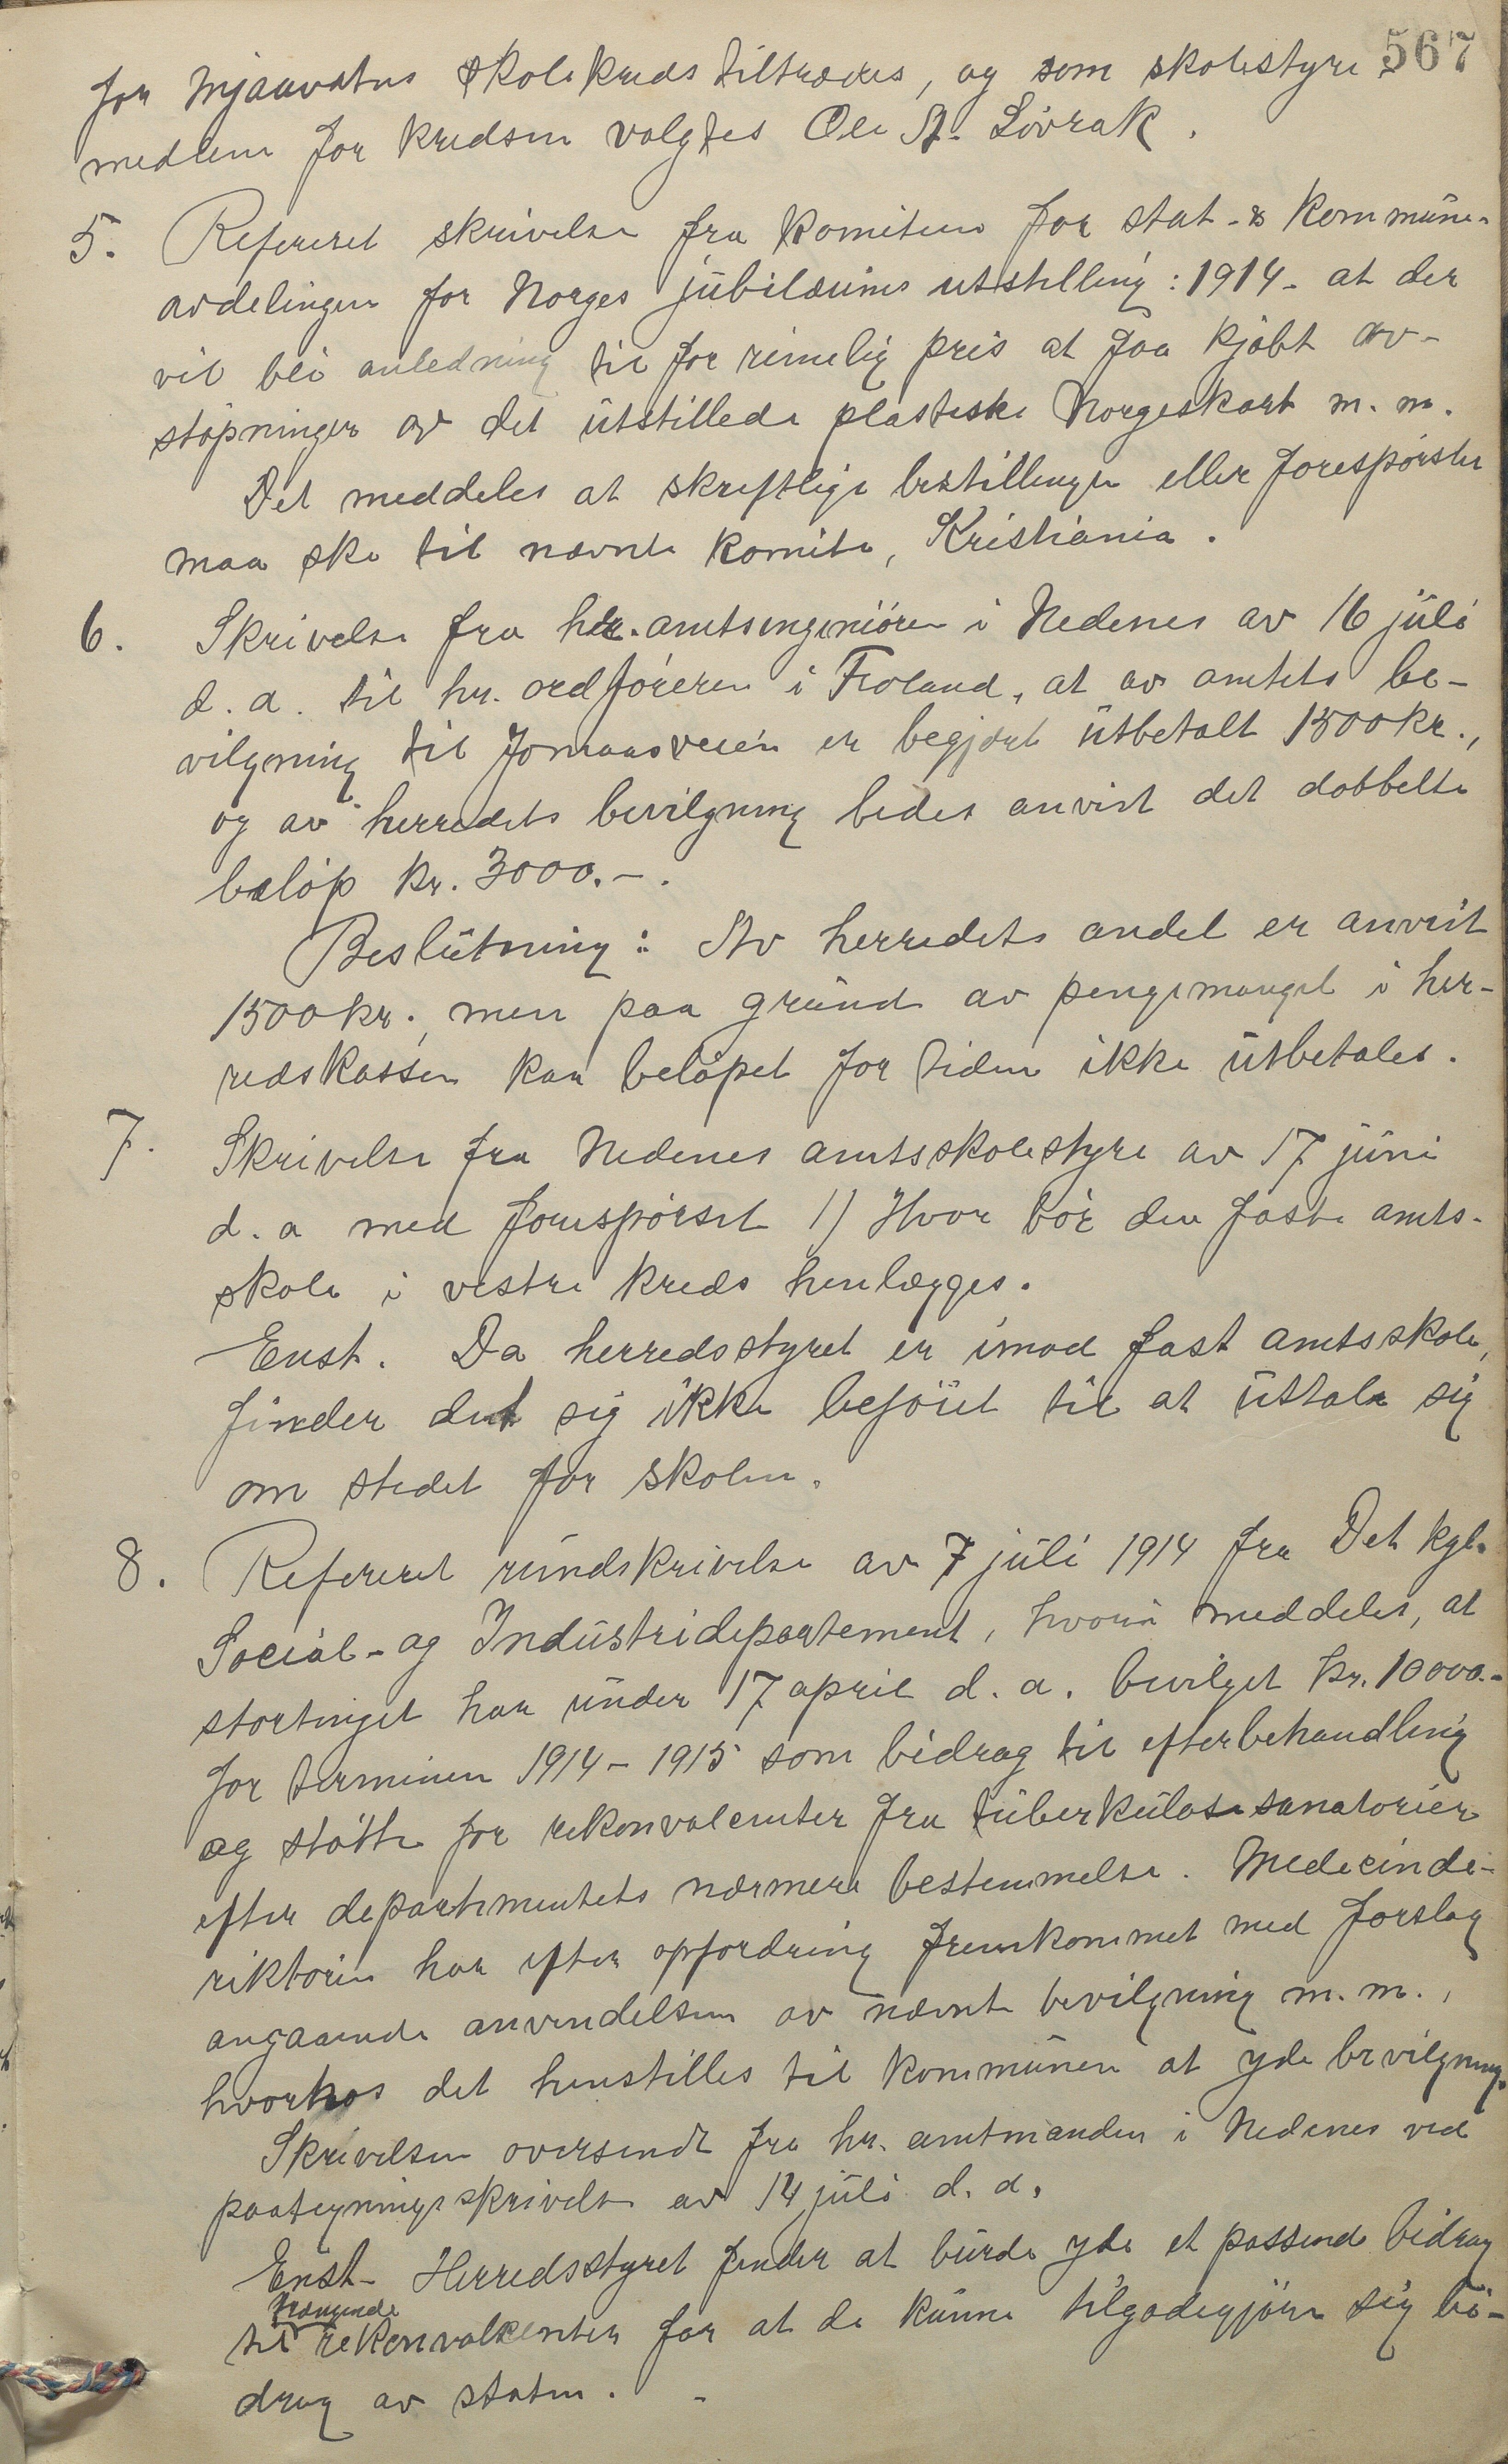 567
for Mjaavatns skolekreds tiltrædes, og som skolestyre
medlem for kredsen valgtes Ole A. Løvrak.
5. Refereret skrivelse fra komiteen for stat- & kommune-
avdelingen for Norges jubilæums utstilling: 1914 - at der
vil bli anledning til for rimelig pris at faa kjøbt av-
støpninger av det utstillede plastiske Norgeskart m. m.
Det meddeles at skriftlige bestillinger eller forespørsler
maa ske til nævnte komite, Kristiania.
6. Skrivelse fra hr. amtsingeniøren i Nedenes av 16 juli
d. a. til hr. ordføreren i Froland, at av amtets be-
vilgning til Jomaasveien er begjært utbetalt 1500 kr.,
og av herredets bevilgning bedes anvist det dobbelte
beløp kr. 3000.-.
Beslutning: Av herredets andel er anvist
1500 kr., men paa grund av pengemangel i her-
redskassen kan beløpet for tiden ikke utbetales.
7. Skrivelse fra Nedenes amtsskolestyre av 17 juni
d. a med forespørsel 1) Hvor bør den faste amts-
skole i vestre kreds henlægges.
Enst. Da herredsstyret er imod fast amtsskole,
finder det sig ikke beføiet til at uttale sig
om stedet for skolen.
8. Refereret rundskrivelse av 7 juli 1914 fra Det kgl.
Social- og Industridepartement, hvori meddeles, at
stortinget har under 17 april d. a. bevilget kr. 10000.-
for terminen 1914-1915 som bidrag til efterbehandling
og støtte for rekonvalenter fra tuberkulosesanatorier
efter departementets nærmere bestemmelse. Medicindi-
rektøren har efter opfordring fremkommet med forslag
angaaende anvendelsen av nævnte bevilgning m. m.,
hvorhos det henstilles til kommunen at yde bevilgning.
Skrivelsen oversendt fra hr. amtmanden i Nedenes ved
paategningsskrivelse av 14 juli d. a.
Enst- Herredsstyret finder at burde yde et passende bidrag
trængende
til rekonvalenter for at de kunne tilgodegjøre sig bi-
drag av staten. -